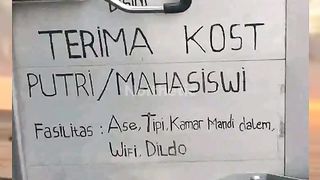 TERIMA KOST
PUTRI/MAHASISWI
Fasilitas : Ase, Tipi, Kamar Mandi dalem,
Wifi, Dildo